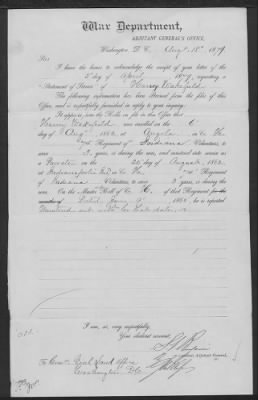 War Department,
ADJUTANT GENERAL'S OFFICE,
Washington, D. C., Augt 18th 1879.
Sir
I have the honor to acknowledge the receipt of your letter of the
5 day of April 1879, requesting a
Statement of Service of Harvey Wakefield
The following information has been obtained from the files of this
Office, and is respectfully furnished in reply to your inquiry.
It appears from the Rolls on file in this Office that
Harvey Wakefield was enrolled on the 6
day of Augt, 1862, at Angola, in Co.
Regiment of Indiana Volunteers, to serve
3 years, or during the war, and mustered into service as
a Private on the day of August, 1862,
at Indianapolis Ind in Co.
Regiment of
Indiana Volunteers, to serve 3 years, or during
the war. On the Muster Roll of Co. H, of that Regiment for
dated June 1865, he is reported
Mustered out with Co. that date,
I am, sir, very respectfully,
Your obedient servant,
Assistant Adjutant General.
To Com'r Genl Land Office
Washington D.C.